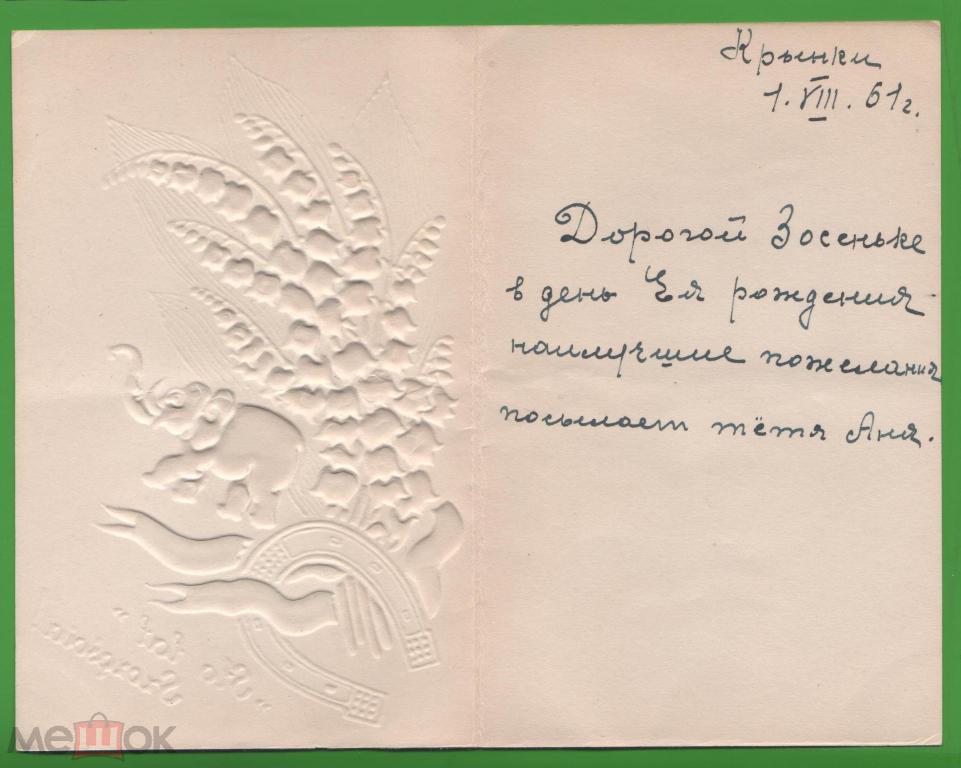 Крынки
1. VIII. 61г.
Дорогой Зосеньке
в день Ея рождения
наилучшие пожелания
посылает тётя Аня.
"Sto lat"
мешок